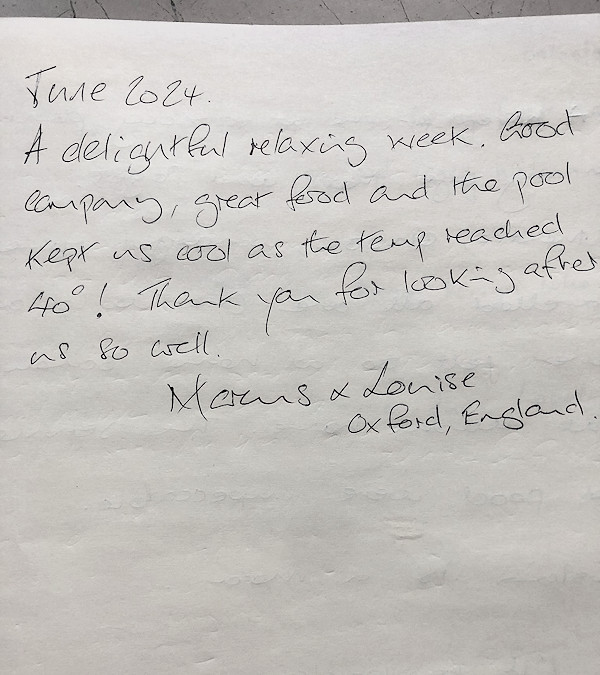 June 2024.
A delightful relaxing week. Good
company, great food and the pool
kept us cool as the temp reached
40°! Thank you for looking after
us so well.
Marcus & Louise
Oxford, England.